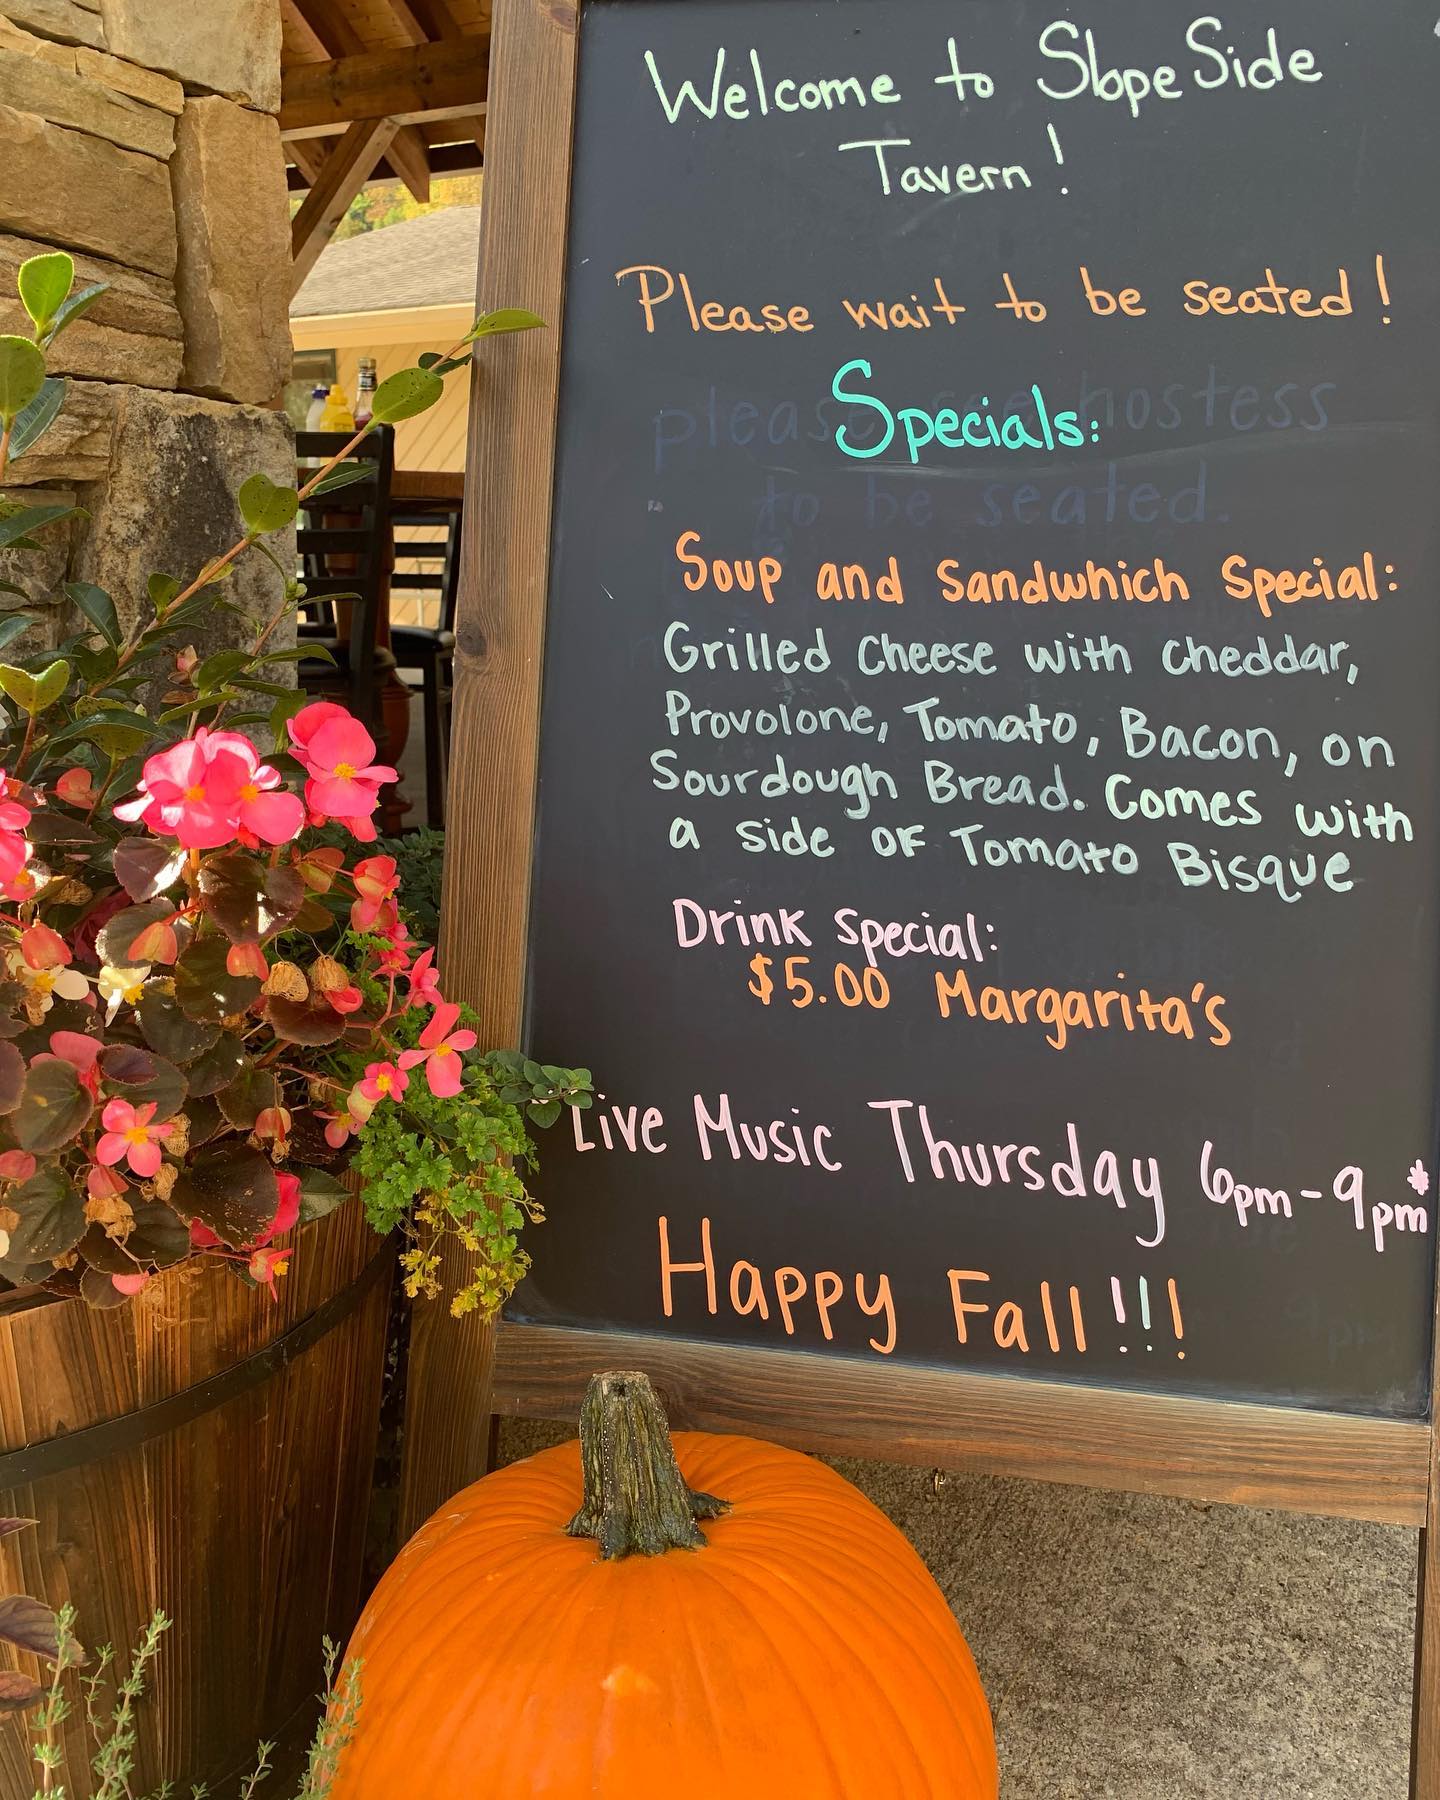 Welcome to SlopeSide
Tavern!
Please wait to be seated!
please see hostess
Specials:
to be seated.
Soup and Sandwhich Special:
Grilled Cheese with cheddar,
Provolone, Tomato, Bacon, on
Sourdough Bread. Comes with
a side of Tomato Bisque
Drink Special:
$5.00 Margarita's
*Live Music Thursday 6pm-9pm*
Happy Fall!!!